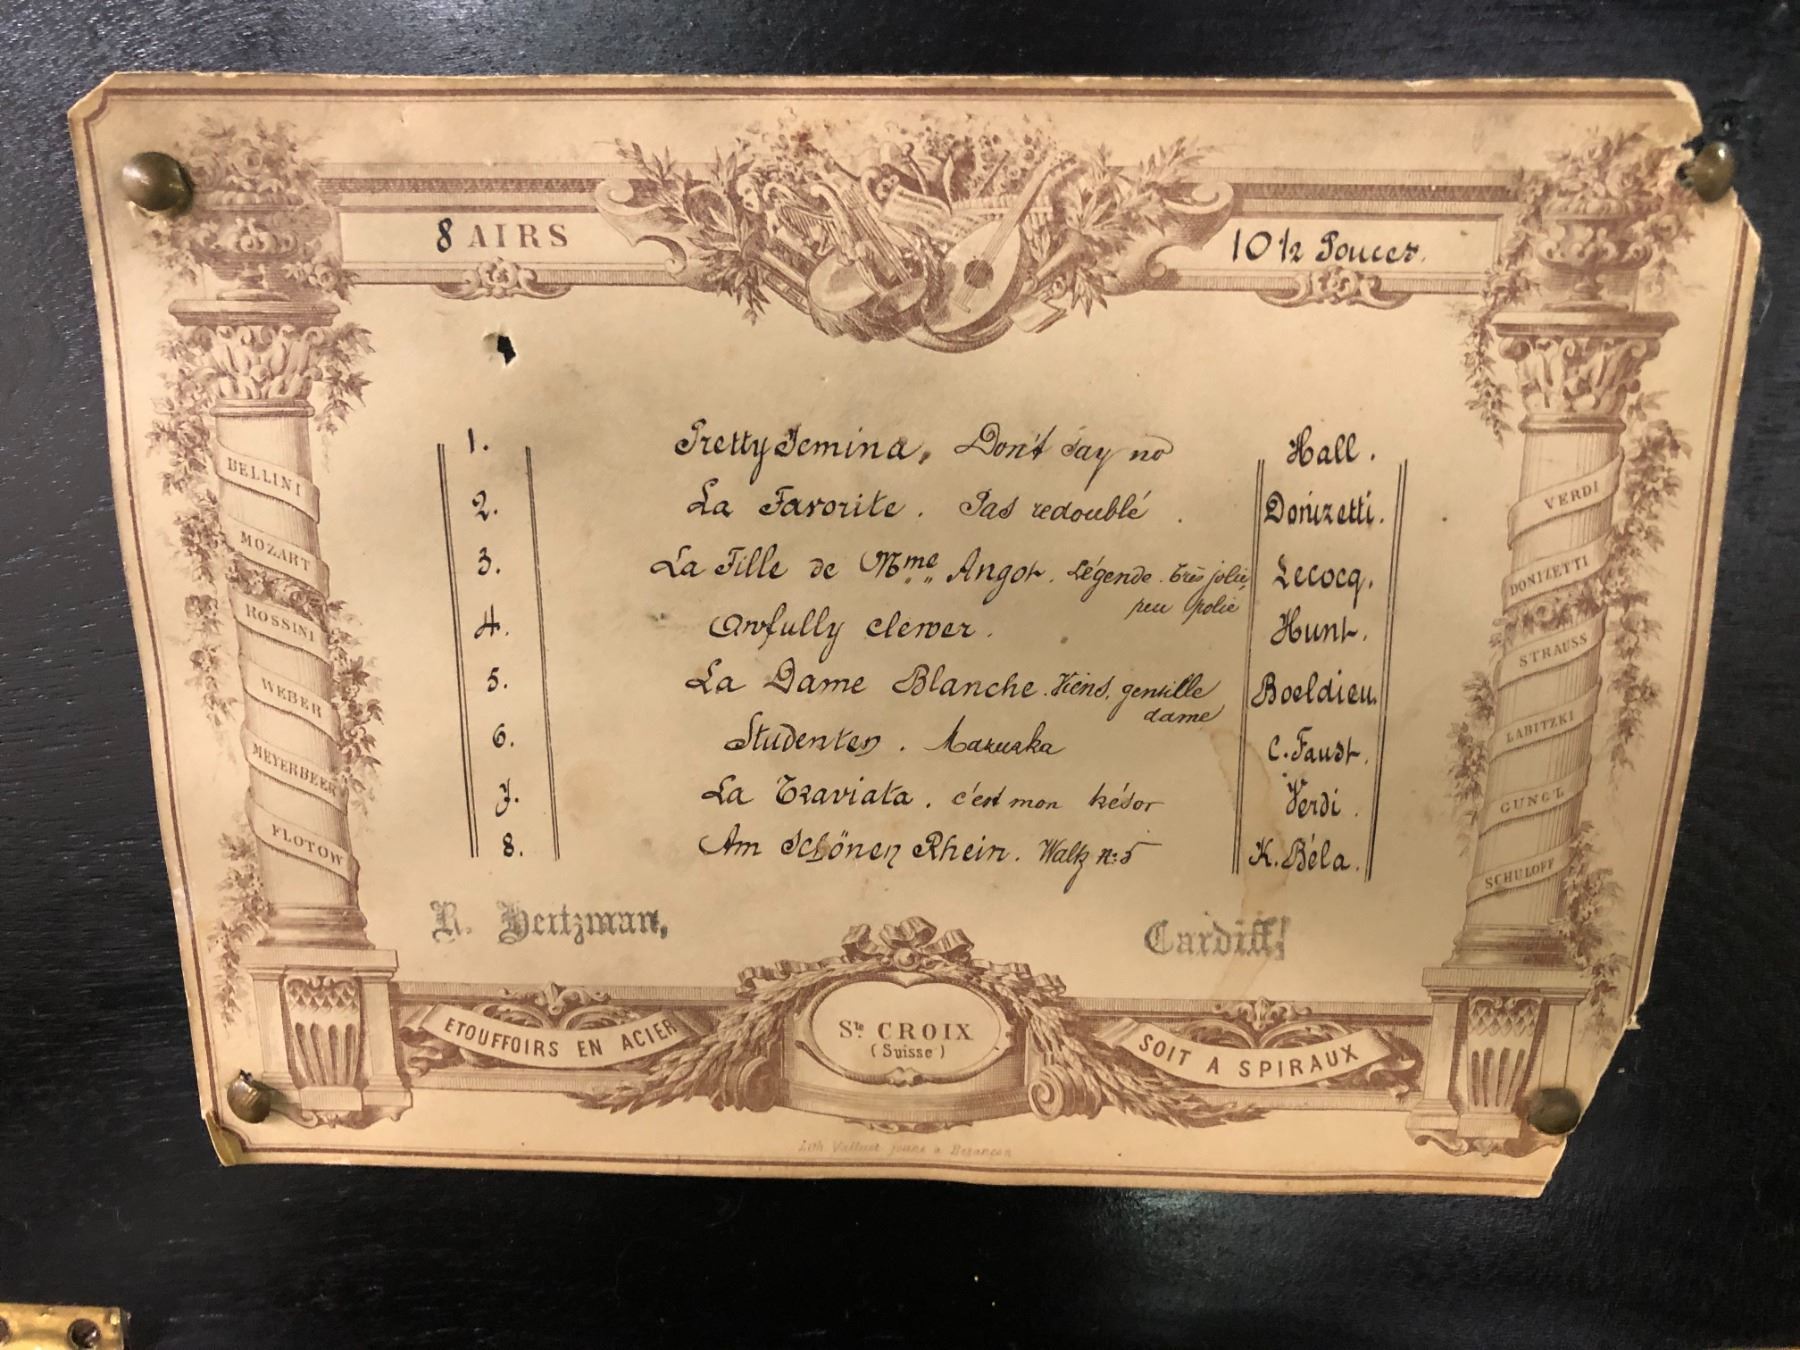 8 AIRS
10 1/2 Pouces.
1. Pretty Jemina, Don't say no Hall.
2. La Favorite. Pas redoublé. Donizetti.
3. La Fille de Mme Angot. Légende. Très jolie, Lecocq.
peu polie
4. Awfully clewer. Hunt.
5. La Dame Blanche. Viens, gentille Boeldieu.
dame
6. Studenten. Mazurka C. Faust.
7. La Traviata. c'est mon trésor Verdi.
8. Am Schönen Rhein. Waltz n: 5 K. Béla.
BELLINI
MOZART
ROSSINI
WEBER
MEYERBEER
FLOTOW
VERDI
DONIZETTI
STRAUSS
LABITZKI
GUNGL
SCHULOFF
R. Hertzman,
Cardiff!
ETOUFFOIRS EN ACIER
Ste CROIX
(Suisse)
SOIT A SPIRAUX
Lith jeune a Besançon